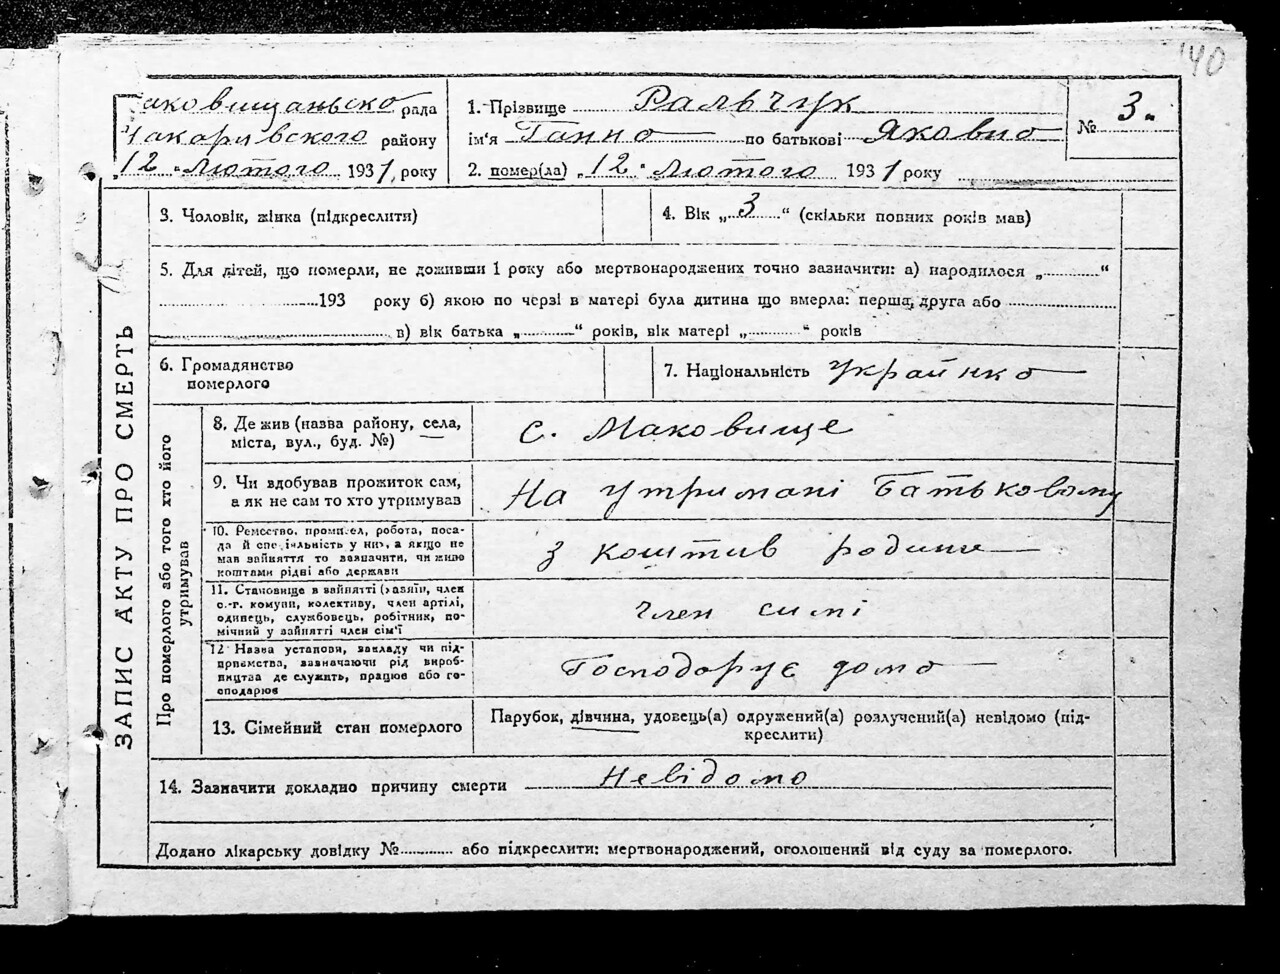 140
ЗАПИС АКТУ ПРО СМЕРТЬ
аковищаньсько рада
Макарівского району
„12 " Лютого 1931, року
1. Прізвище Ральчук
ім'я Ганно по батькові Яковно
2. помер(ла) „12 " Лютого 1931 року
№ 3.
3. Чоловік, жінка (підкреслити)
4. Вік „3" (скільки повних років мав)
5. Для дітей, що померли, не доживши 1 року або мертвонароджених точно зазначити: а) народилося „ "
193 року б) якою по черзі в матері була дитина що вмерла: перша, друга або
в) вік батька „ " років, вік матері „ " років
6. Громадянство
померлого
7. Національність Українко
Про померлого або того хто його
утримував
8. Де жив (назва району, села,
міста, вул., буд. №)
с. Маковище
9. Чи вдобував прожиток сам,
а як не сам то хто утримував
На утримані Батьковому
10. Ремество, промисел, робота, поса-
да й спеціяльність у них, а якщо не
мав вайняття то вазначити, чи живе
коштами рідні або держави
з коштив родини
11. Становище в вайнятті (хазяїн, член
с.-г. комуни, колективу, член артілі,
одинець, службовець, робітник, по-
мічний у вайнятті член сім'ї
член симі
12 Назва установи, закладу чи під-
приємства, вазначаючи рід вироб-
ництва де служить, працює або го-
сподарює
Господорує домо
13. Сімейний стан померлого
Парубок, дівчина, удовець(а) одружений(а) розлучений(а) невідомо (під-
креслити)
14. Зазначити докладно причину смерти Невідомо
Додано лікарську довідку № або підкреслити: мертвонароджений, оголошений від суду за померлого.